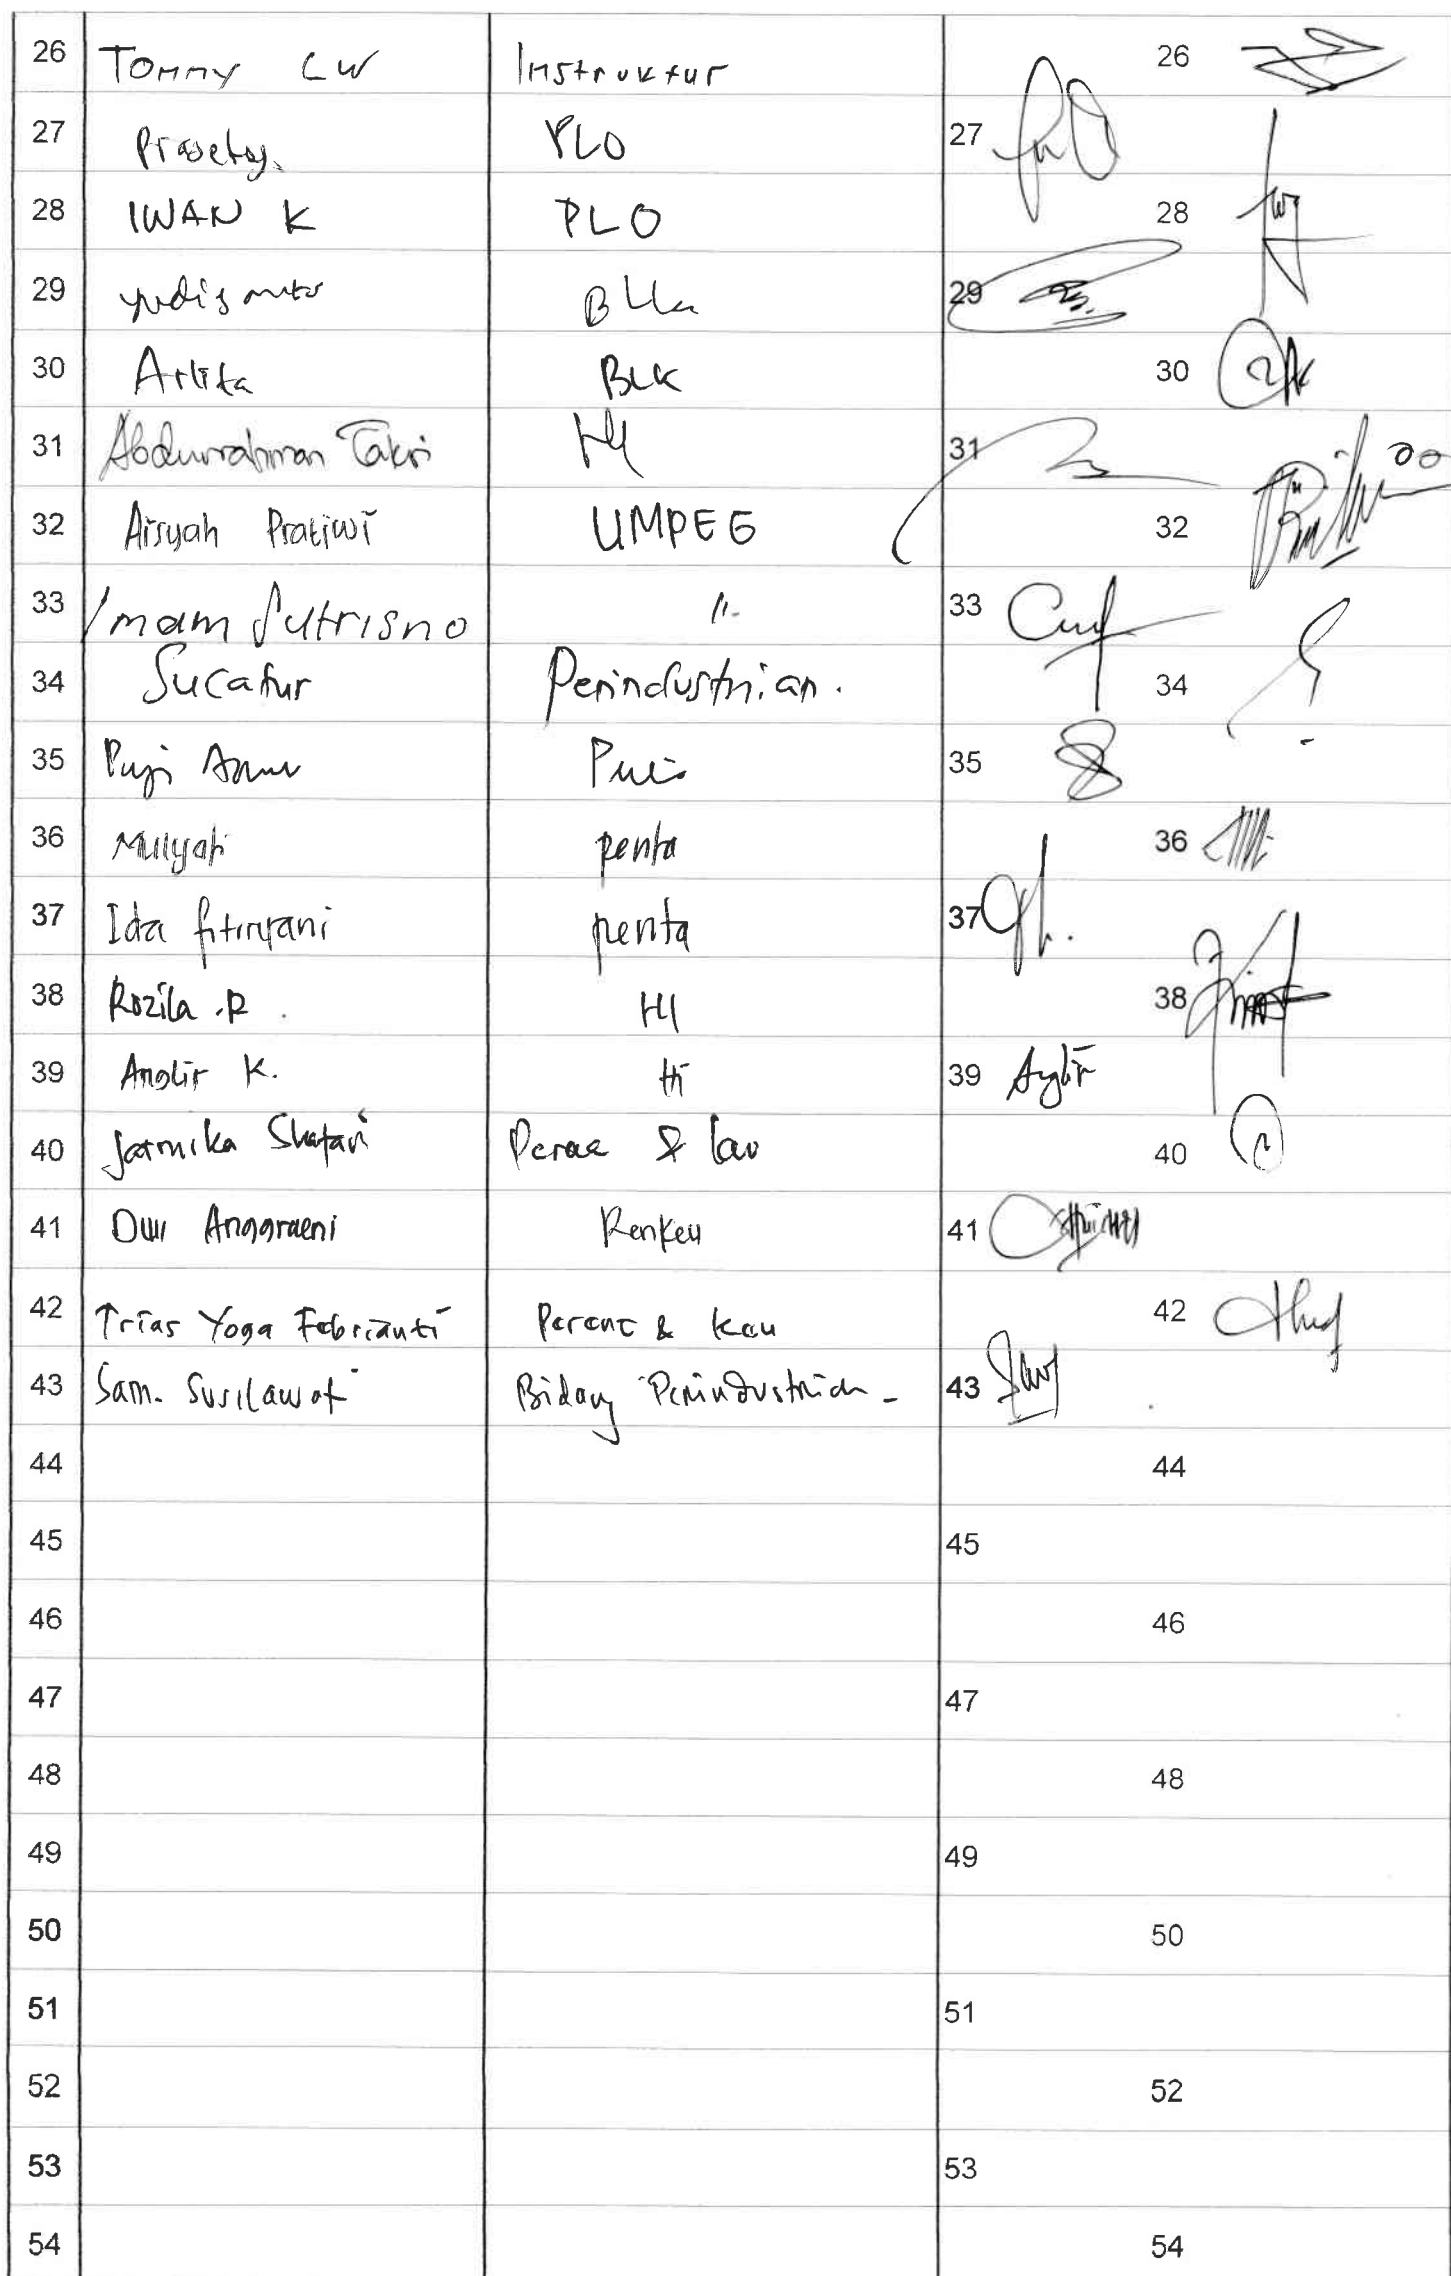 26 Tommy LW Instruktur 26
27 Prasetyo PLO 27
28 IWAN K PLO 28
29 yudis 29
30 Arlita BLK 30
31 Abdurrahman HI 31
32 Aisyah Pratiwi UMPEG 32
33 Imam Sutrisno 11- 33
34 Sucatur Perindustrian. 34
35 Puji 35
36 Mulyati penta 36
37 Ida fitriyani penta 37
38 Rozila .R. HI 38
39 K. HI 39
40 Jatmika & 40
41 Dwi Anggraeni Renkeu 41
42 Trias Yoga Febrianti Perenc & keu 42
43 Sam. Susilawati Bidang Perindustrian - 43
44 44
45 45
46 46
47 47
48 48
49 49
50 50
51 51
52 52
53 53
54 54